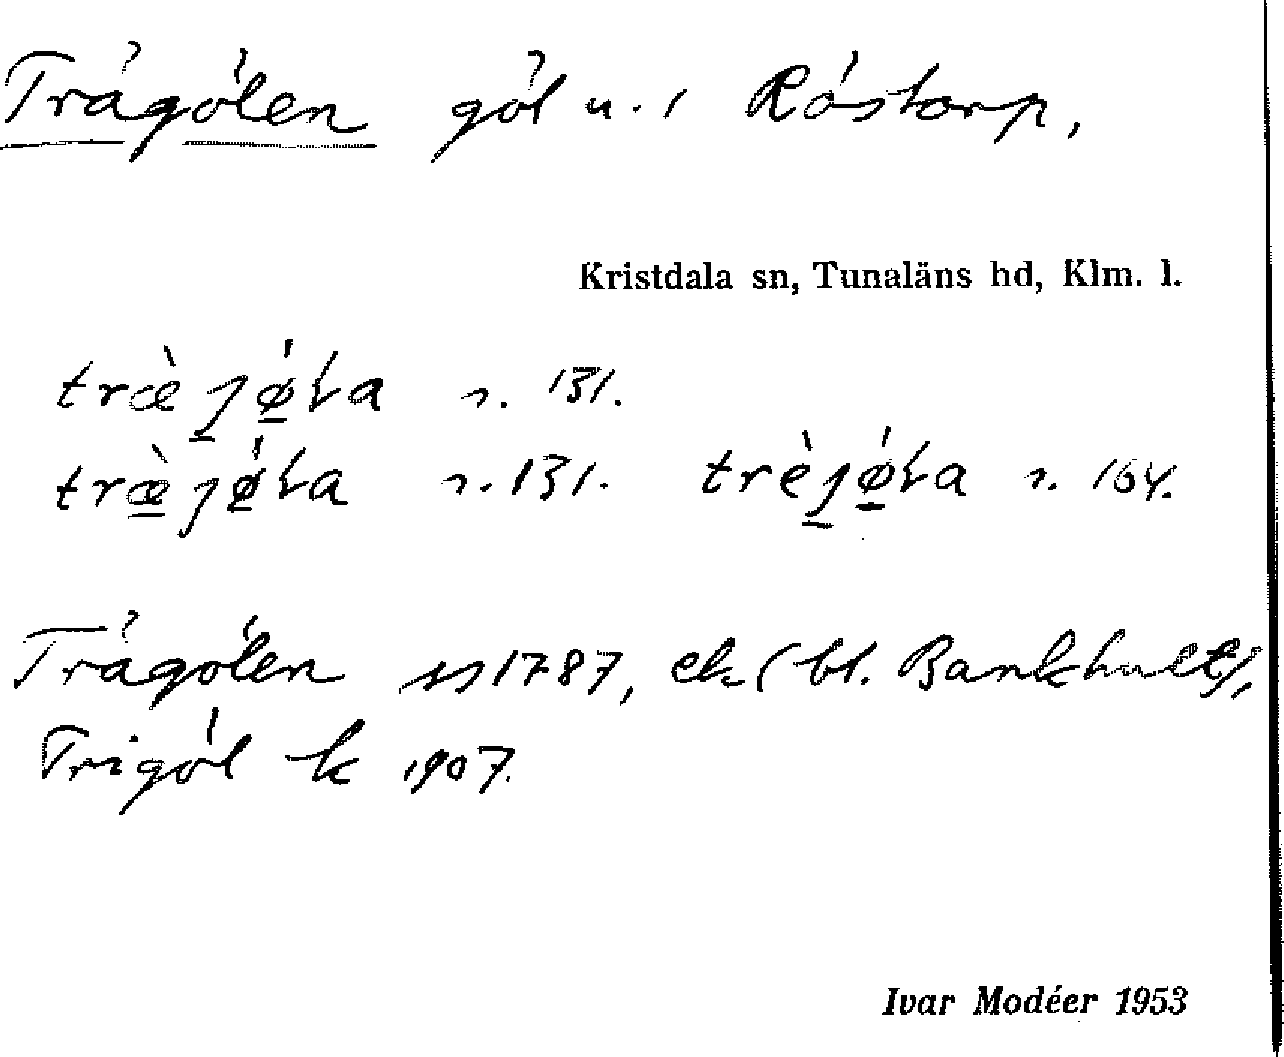 Trägölen göl u. i Röstorp,
Kristdala sn, Tunaläns hd, Klm. l.
træ̀ȷǿla r. 131.
træ̀ȷǿla r. 131. trèȷǿla r. 164.
Trägölen ss 1787, ek (bl. Bankhult),
Trigöl k 1907.
Ivar Modéer 1953